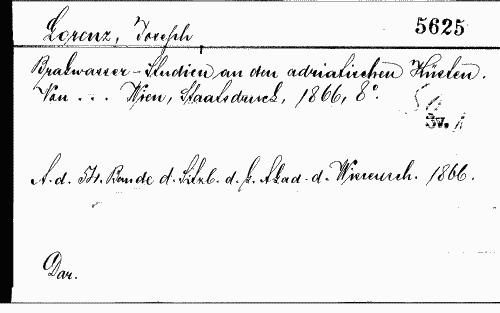 Lorenz, Joseph, 5625
Brakwasser-Studien an den adriatischen Küsten.
Von ... Wien, Staatsdruck, 1866, 8°.
3w.
A. d. 54. Bande d. Sitzb. d. k. Akad. d. Wissensch. 1866.
Dar.